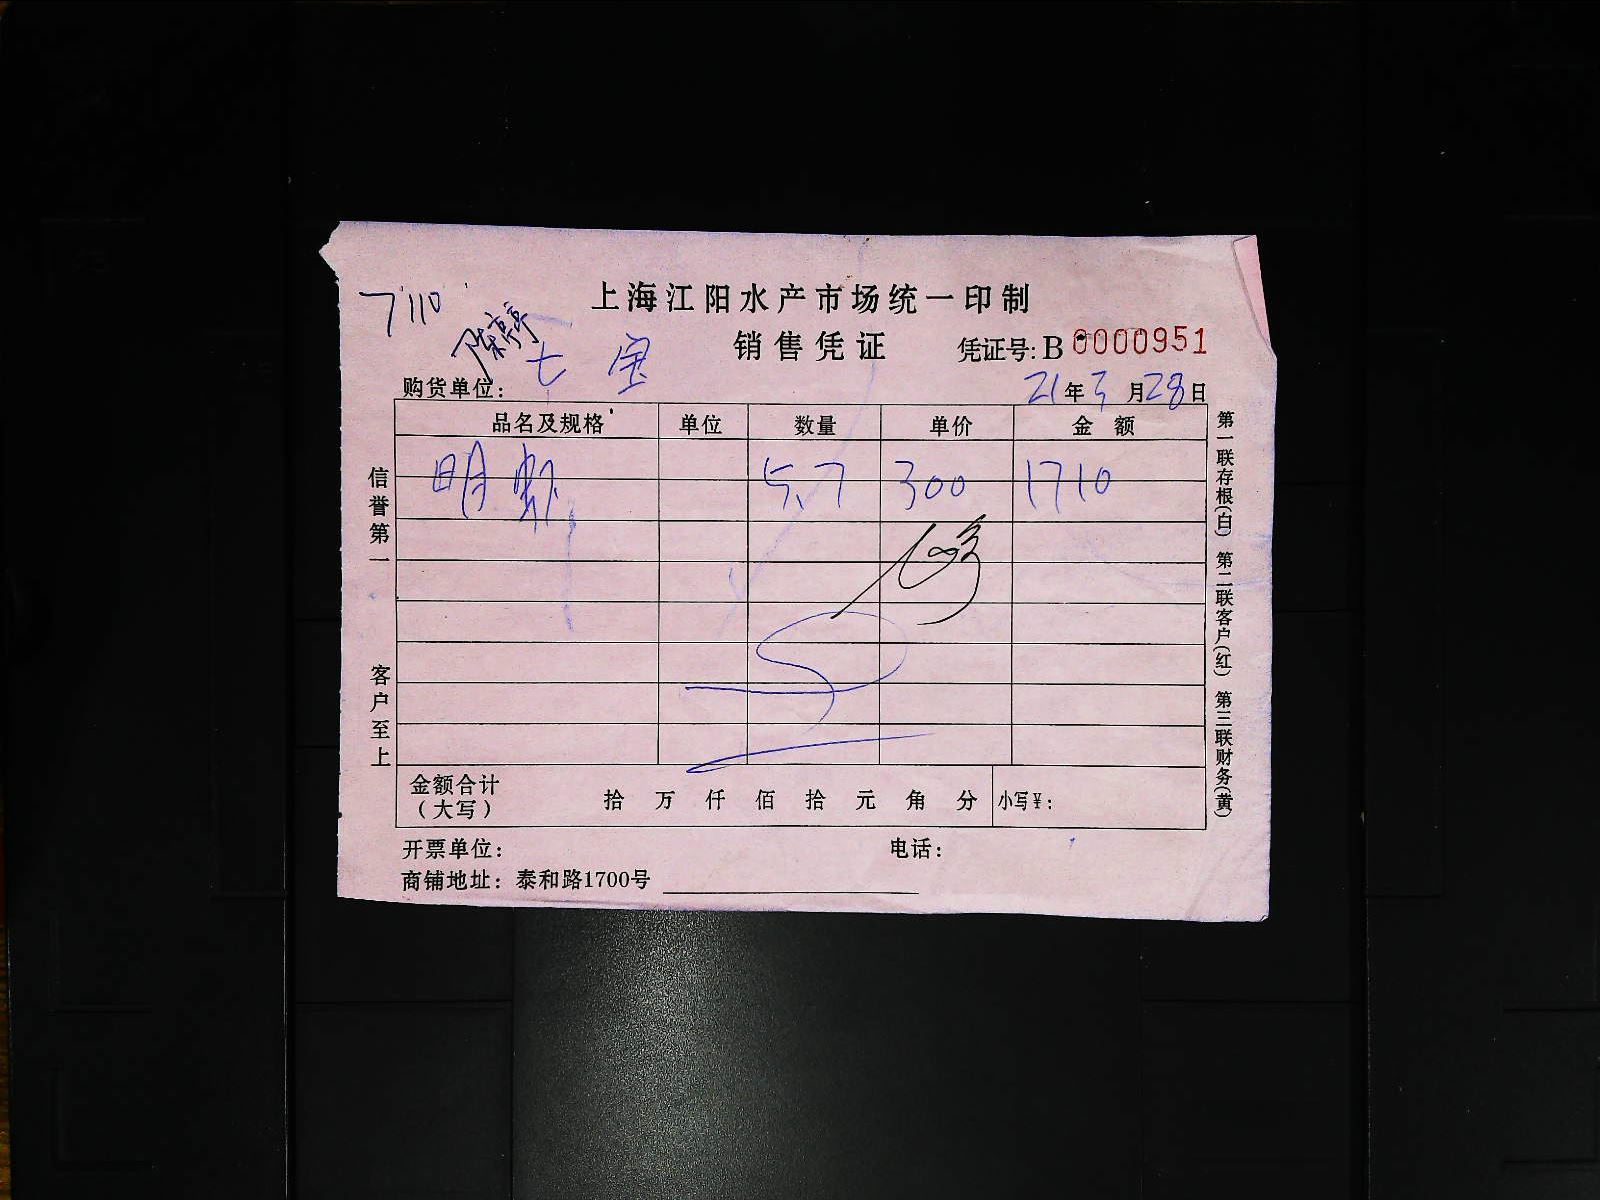 上海江阳水产市场统一印制
7110
陈亭亭
销售凭证 凭证号: B 0000951
购货单位: 七宝
21年3月28日
品名及规格 单位 数量 单价 金额
明虾 5.7 300 1710
信誉第一 客户至上
第一联存根(白) 第二联客户(红) 第三联财务(黄)
金额合计 拾万仟佰拾元角分 小写¥:
(大写)
开票单位: 电话:
商铺地址: 泰和路1700号